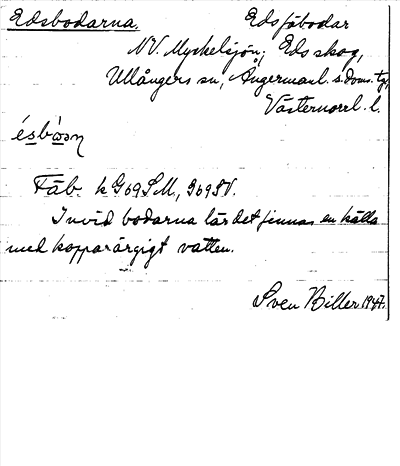 Edsbodarna. Edsfäbodar
NV. Myckelsjön, Eds skog,
Ullångers sn, Ångermanl. s. doms. tg,
Västernorrl. l.
Fäb. k G 69 S M, 969 SV.
Invid bodarna lär det finnas en källa
med kopparärgigt vatten.
Sven Biller 1947.